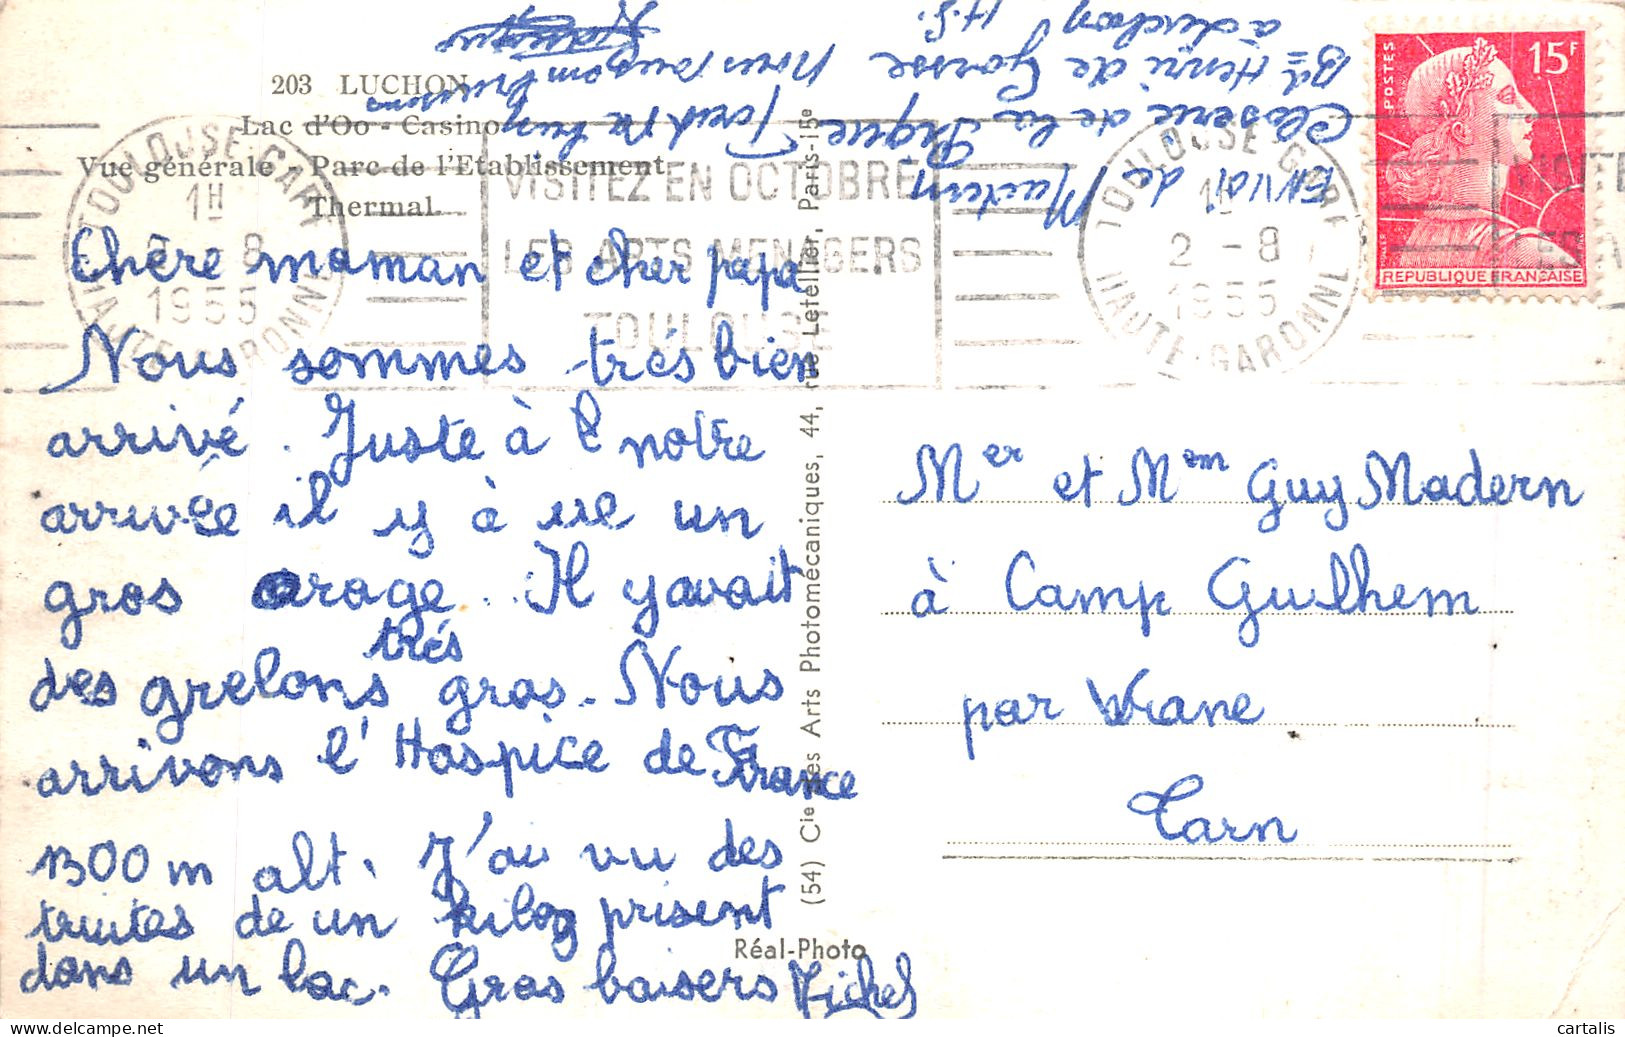 203 LUCHON
Lac d'Oo - Casino
Vue générale - Parc de l'Etablissement
Thermal
Chère maman et cher papa
Nous sommes trés bien
arrivé. Juste à notre
arrivée il y à un
gros orage. Il yavait
des grelons trés gros. Nous
arrivons l'Hospice de France
1300 m alt. J'ai vu des
truites de un kilog prisent
dans un lac. Gros baisers Michel
ENVOI de
Closerie de la Pique
Bd Henri de Gorsse
à Luchon H.G.
Réal-Photo
(54) Cie des Arts Photomécaniques, 44, rue Letellier, Paris-15e
TOULOUSE-GARE
1H
2 - 8
1955
HAUTE-GARONNE
VISITEZ EN OCTOBRE
LES ARTS MENAGERS
TOULOUSE
TOULOUSE-GARE
2 - 8
1955
HAUTE-GARONNE
POSTES
15F
REPUBLIQUE FRANÇAISE
Mer et Mem Guy Madern
à Camp Guilhem
par Viane
Tarn
cartalis